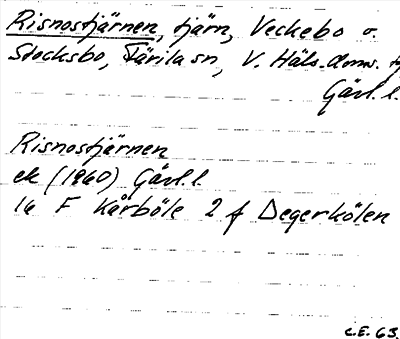 Risnostjärnen, tjärn, Veckebo o.
Stocksbo, Färila sn, V. Häls. doms. tg
Gävl. l.
Risnostjärnen
ek (1960) Gävl. l.
16 F Kårböle 2 f Degerkölen
C.E. 63.